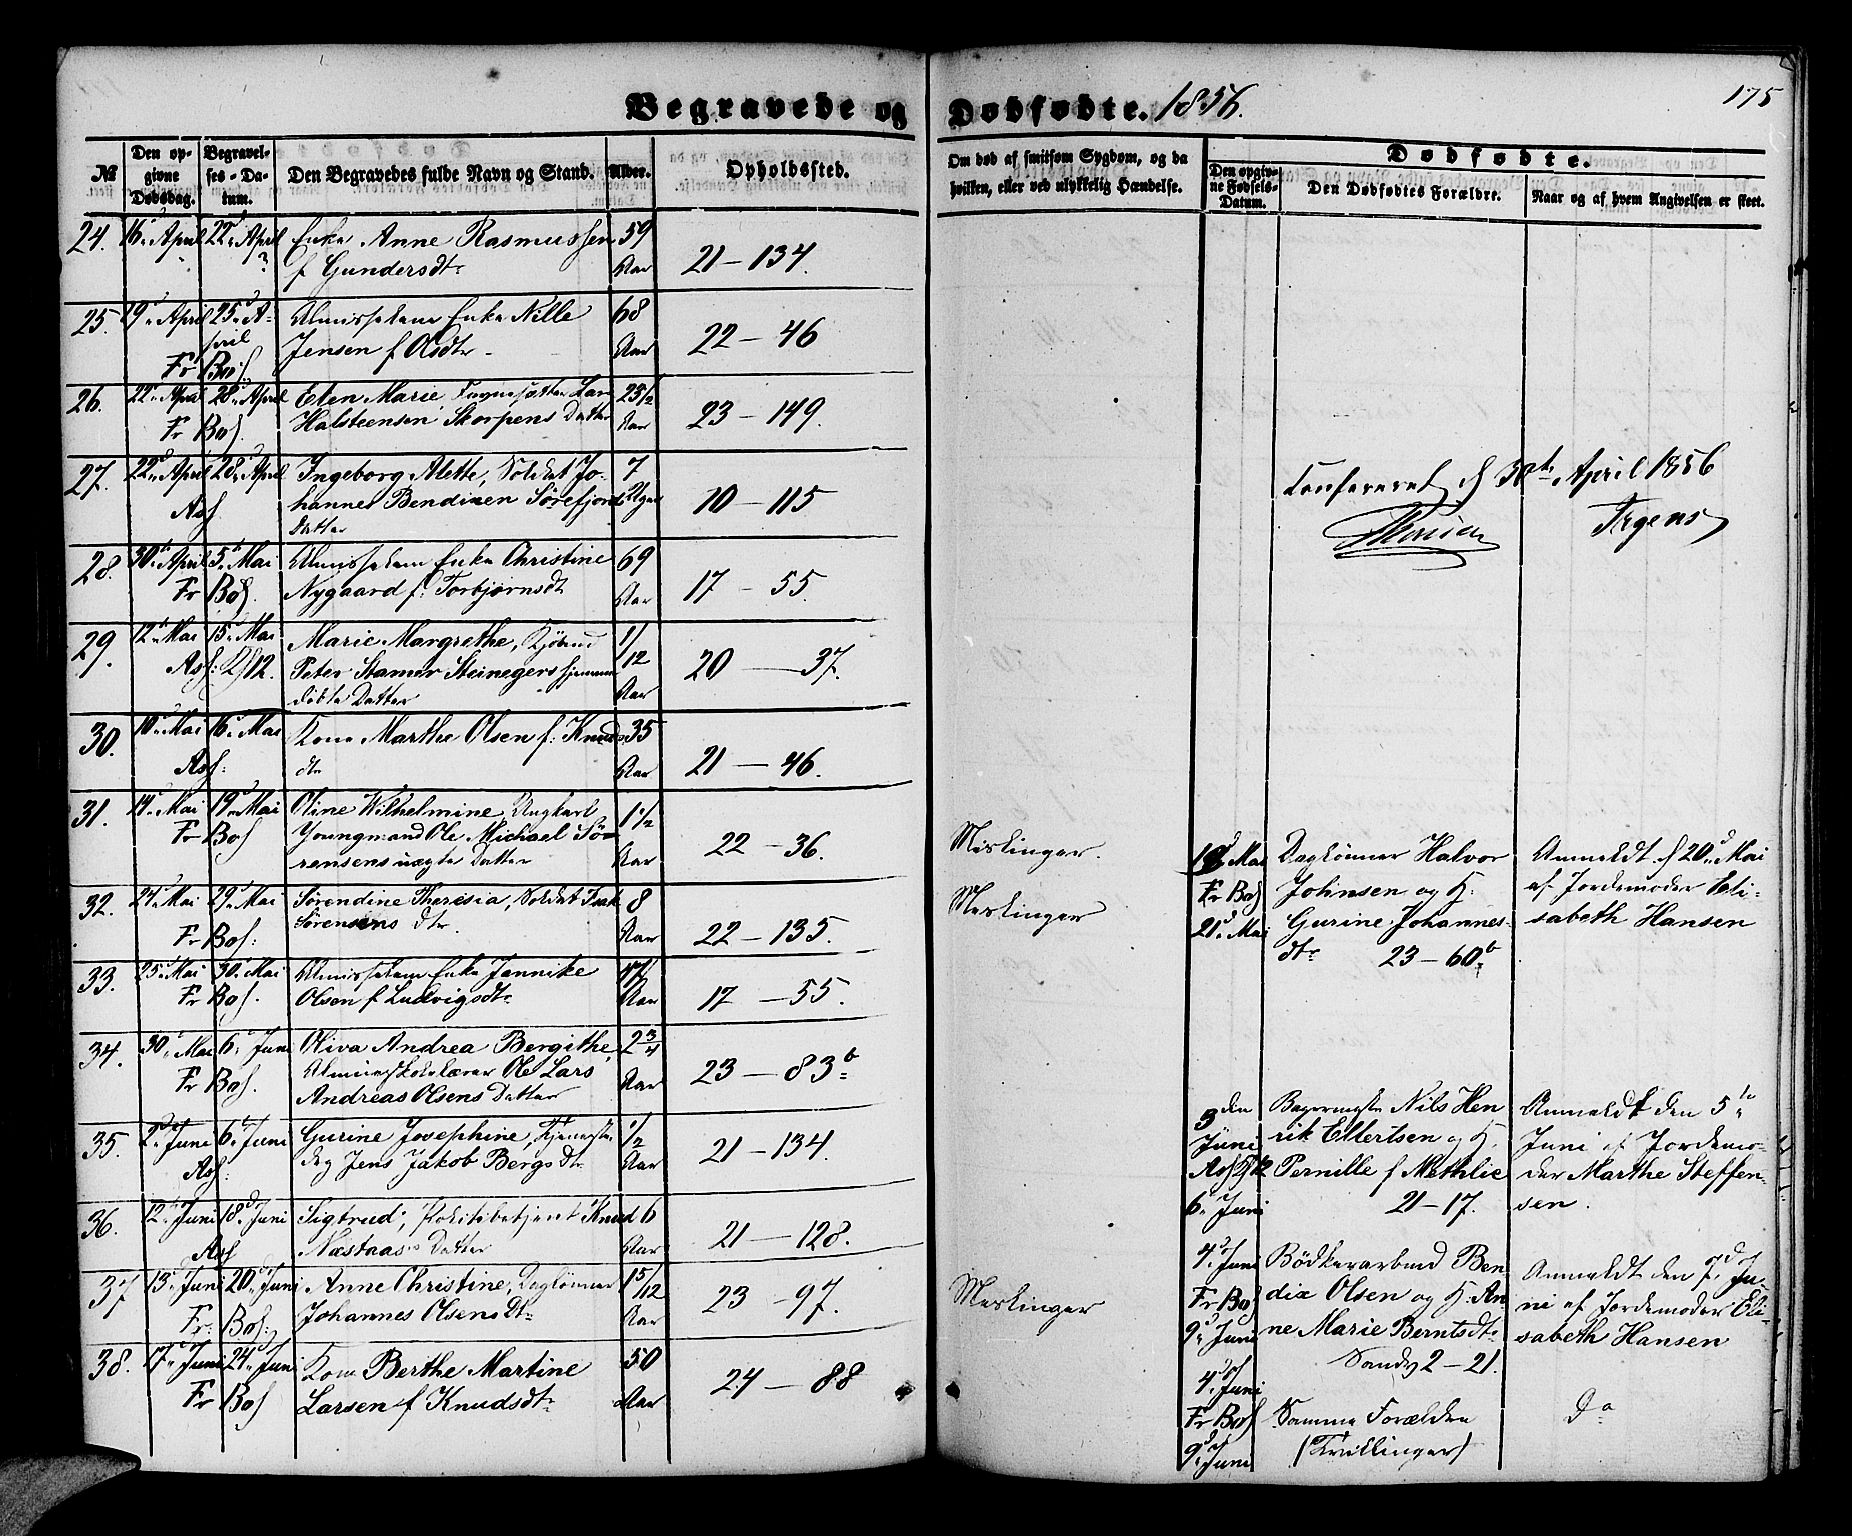 Begravede og Dødfødte. 1856.
175
№
Den opgivne Dødsdag.
Begravelses-Datum.
Den Begravedes fulde Navn og Stand.
Alder.
Opholdssted.
Om død af smitsom Sygdom, og da hvilken, eller ved ulykkelig Hændelse.
Dødfødte.
Den opgivne Fødsels-Datum.
Den Dødfødtes Forældre.
Naar og af hvem Angivelsen er skeet.
24. 16 April 22 April Enke Anne Rasmussen 59
f Gundersdtr Aar 21 – 134.
25. 19 April 25 A- Almisselem Enke Nille 68
pril Jensen f Olsdtr Aar 22 – 46
Fr Bos.
26. 22 April 28 April Elen Marie, Lars 23 1/2
Fr Bos. Halsteensen Skorpens Datter Aar 23 – 149.
27. 22 April 28 April Ingeborg Alette, Soldat Jo- 7
Asf. hannes Bendixen Sörefjords Uger 10 – 115
Datter
28. 30 April 5 Mai Almisselem Enke Christine 69
Fr Bos. Nygaard f. Torbjørnsdt Aar 17 – 55.
29. 12 Mai 15 Mai Marie Margrethe, 1/12
Asf: Peter Stamar Steinegers hjemme Aar 20 – 37.
døbte Datter
30. 10 Mai 16 Mai Kone Marthe Olsen f. Knuds 35
Asf: dtr Aar 21 – 46.
31. 14 Mai 19 Mai Oline Wilhelmine, Ungkarl 1 1/2
Fr Bos Youngmand Ole Michael Sö- Aar 22 – 36.
rensens uægte Datter
32. 24 Mai 29 Mai Sörendine Theresia, Soldat Isak 8
Fr Bos: Sörensens dtr. Aar 22 – 135.
33. 25 Mai 30 Mai Almisselem Enke Jannike 47
Fr Bos. Olsen f Ludvigsdtr Aar 17 – 55.
34. 30 Mai 6 Juni Oliva Andrea Bergithe, 2 3/4
Fr Bos. Almueskolelærer Ole Lars Aar 23 – 83b
Andreas Olsens Datter
35. 2 Juni 6 Juni Gurine Josephine, 1/2
Asf: Jens Jakob Bergs dtr. Aar 21 – 134.
36. 12 Juni 18 Juni Sigtrud, Politibetjent Knud 6
Asf Næstaas Datter Aar 21 – 128.
37 13 Juni 20 Juni Anne Christine, Daglønner 1 5/12
Fr: Bos: Johannes Olsens Dtr Aar 23 – 97.
38. 17 Juni 24 Juni Kone Berthe Martine 50
Fr Bos Larsen f Knudsdtr Aar 24 – 88
Confereret d 30te April 1856
Irgens
Meslinger.
Meslinger
Meslinger
Mai Daglønner Halvor Anmeldt d 20 Mai
Fr Bos Johnsen og K: af Jordemoder Eli-
21 Mai Gurine Johannes- sabeth Hansen
dtr 23 – 60b
3 den Bagermester Nils Hen Anmeldt den 5te
Juni rik Ellertsen og K. Juni af Jordemo-
Asf Pernille f Mathlie der Marthe Steffen-
6 Juni 21 – 17. sen.
4 Juni Bödkerarbeid Ben- Anmeldt den 7 Ju-
Fr Bos dix Olsen og K: An ni af Jordemoder Eli-
9 Juni ne Marie Berntsdtr sabeth Hansen
Sandv 2 – 21.
4 Juni
Fr Bos Samme Forældre Do
9 Juni (Tvillinger)